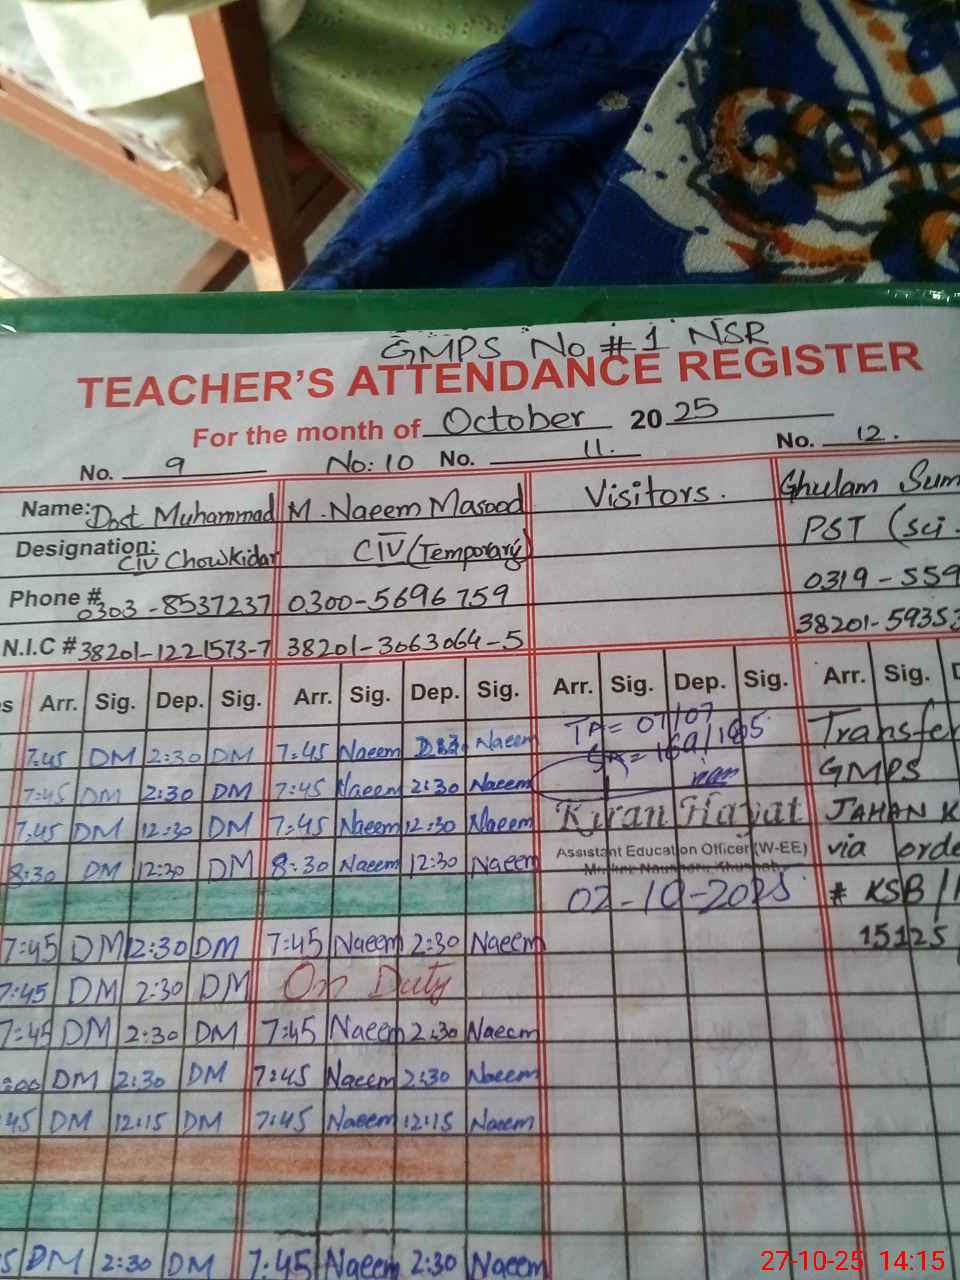 GMPS No # 1 NSR
TEACHER'S ATTENDANCE REGISTER
For the month of October 2025
No. 9 No: 10 No. 11. No. 12.
Name: Dost Muhammad M. Naeem Masood Visitors. Ghulam Sum
Designation: CIV Chowkidar CIV (Temporary) PST (sci.
Phone # 0303-8537237 0300-5696759 0319-559
N.I.C # 38201-1221573-7 38201-3063064-5 38201-5935
s Arr. Sig. Dep. Sig. Arr. Sig. Dep. Sig. Arr. Sig. Dep. Sig. Arr. Sig. D
7:45 DM 2:30 DM 7:45 Naeem Naeem TA= 07/07 Transfer
7:45 DM 2:30 DM 7:45 Naeem 2:30 Naeem GMPS
7:45 DM 12:30 DM 7:45 Naeem 12:30 Naeem Kiran Hayat JAHAN K
8:30 DM 12:30 DM 8:30 Naeem 12:30 Naeem Assistant Education Officer (W-EE) via orde
02-10-2025 # KSB/
7:45 DM 12:30 DM 7:45 Naeem 2:30 Naeem 15125
7:45 DM 2:30 DM On Duty
7:45 DM 2:30 DM 7:45 Naeem 2:30 Naeem
:00 DM 2:30 DM 7:45 Naeem 2:30 Naeem
45 DM 12:15 DM 7:45 Naeem 12:15 Naeem
5 DM 2:30 DM 7:45 Naeem 2:30 Naeem
27-10-25 14:15